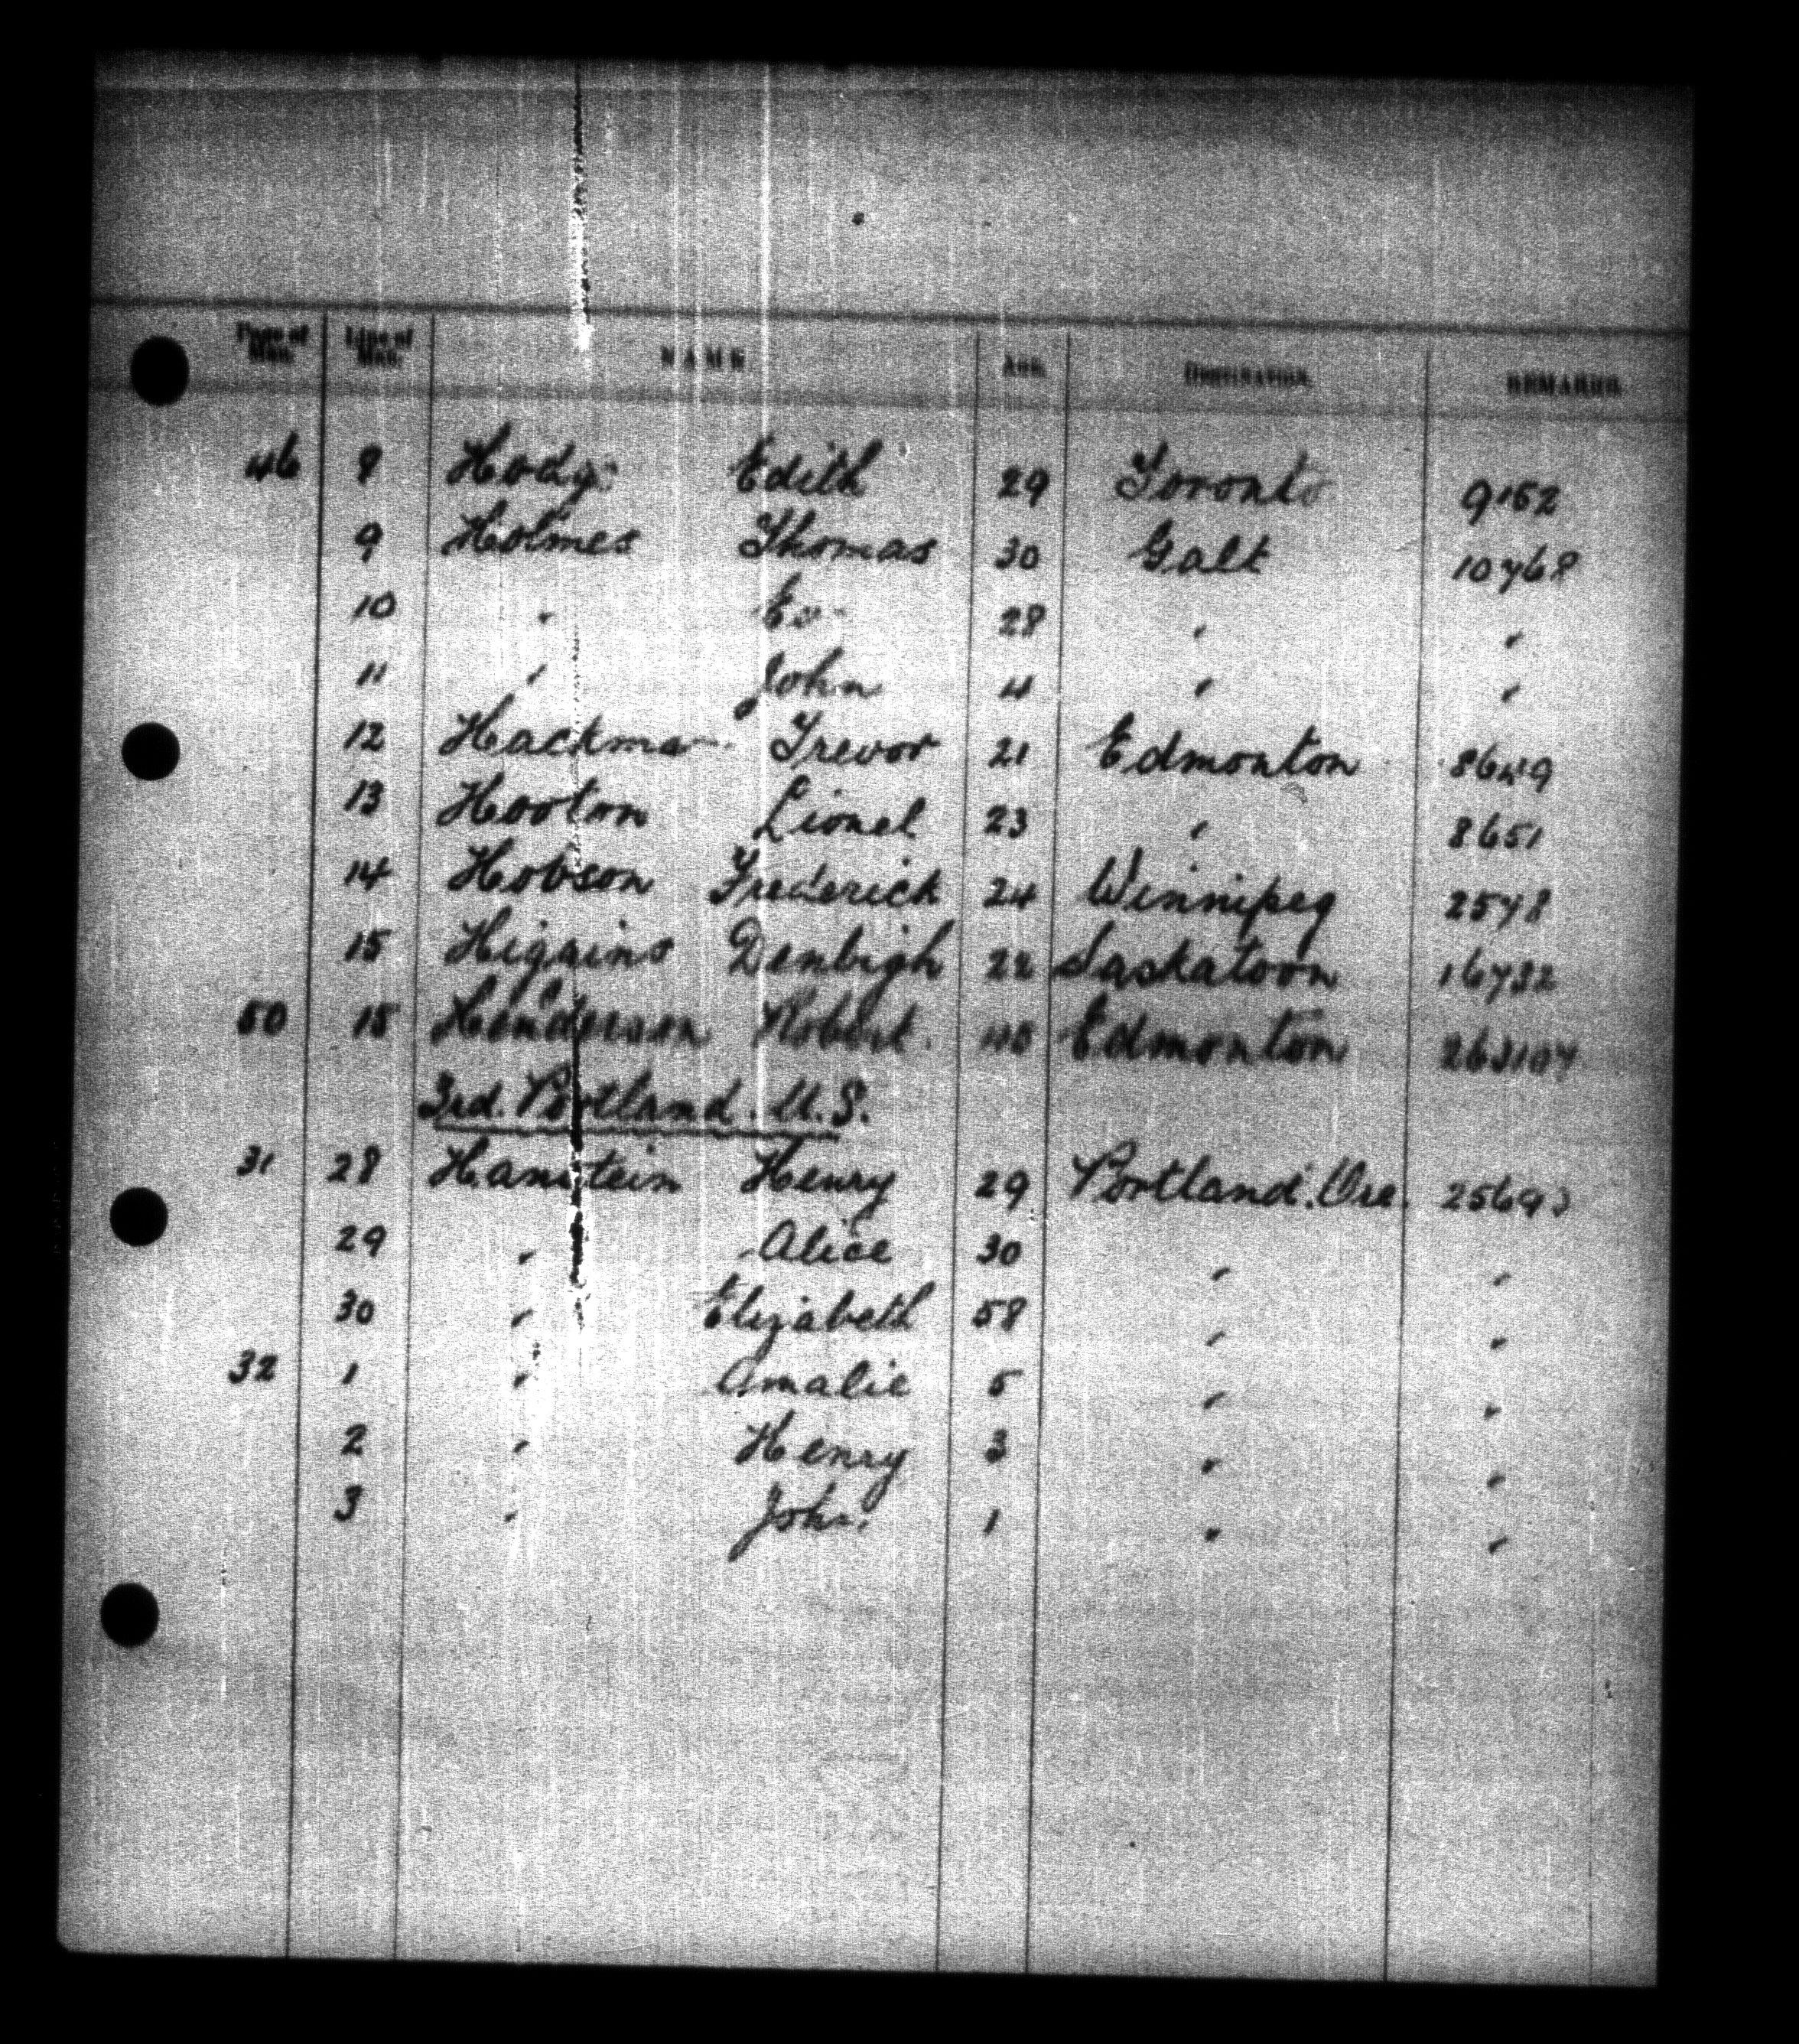 Page of Man. Line of Man. NAME AGE. DESTINATION. REMARKS
46 8 Hody Edith 29 Toronto 9152
9 Holmes Thomas 30 Galt 10768
10 " 28 " "
11 " John 4 " "
12 Trevor 21 Edmonton 8649
13 Hooton Lionel 23 " 8651
14 Hobson Frederick 24 Winnipeg 2578
15 Higgins Denbigh 22 Saskatoon 16732
50 15 Henderson Robert. Edmonton 263107
3rd. Portland. U.S.
31 28 Hanstein Henry 29 Portland. Ore.
29 " Alice 30 " "
30 " Elizabeth 58 " "
32 1 " Amalie 5 " "
2 " Henry 3 " "
3 " John 1 " "